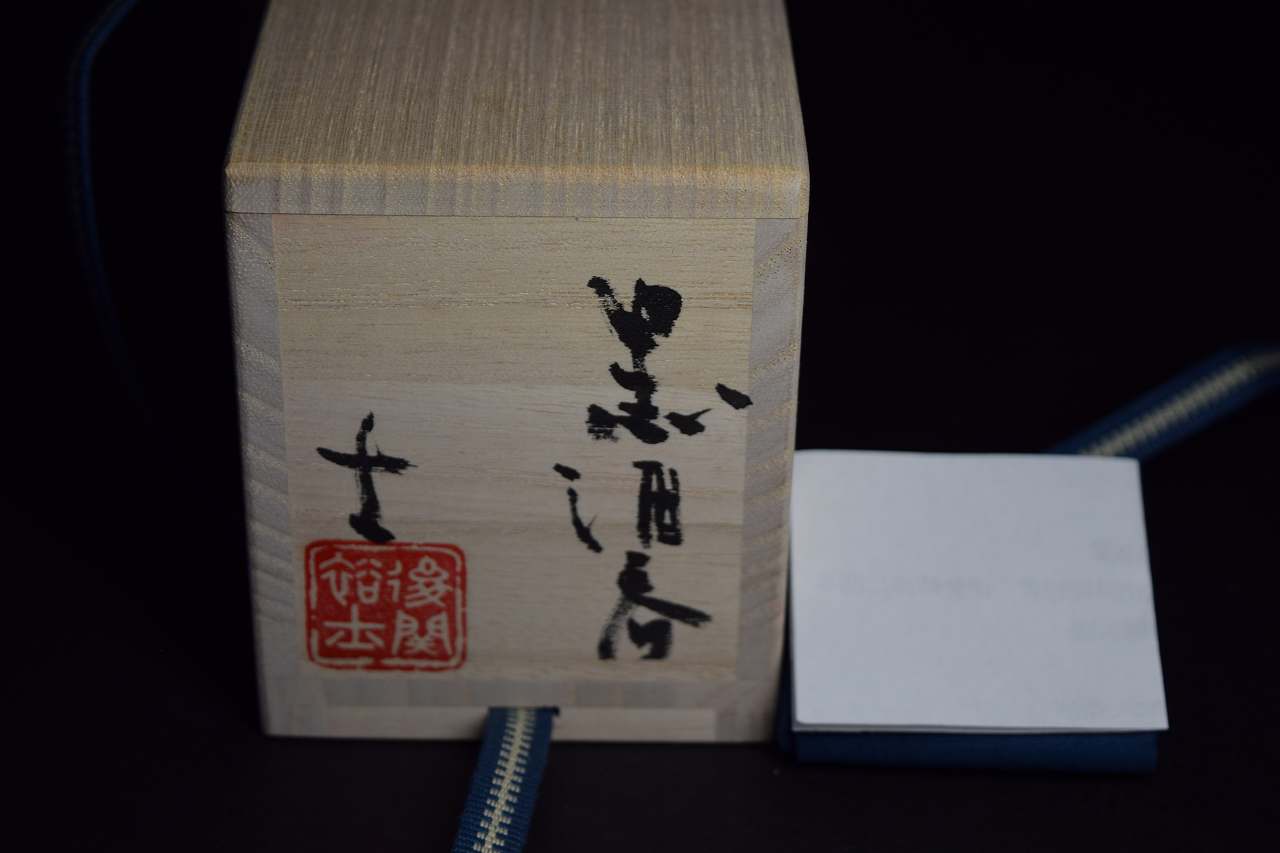 黒酒呑
士
後関
裕士